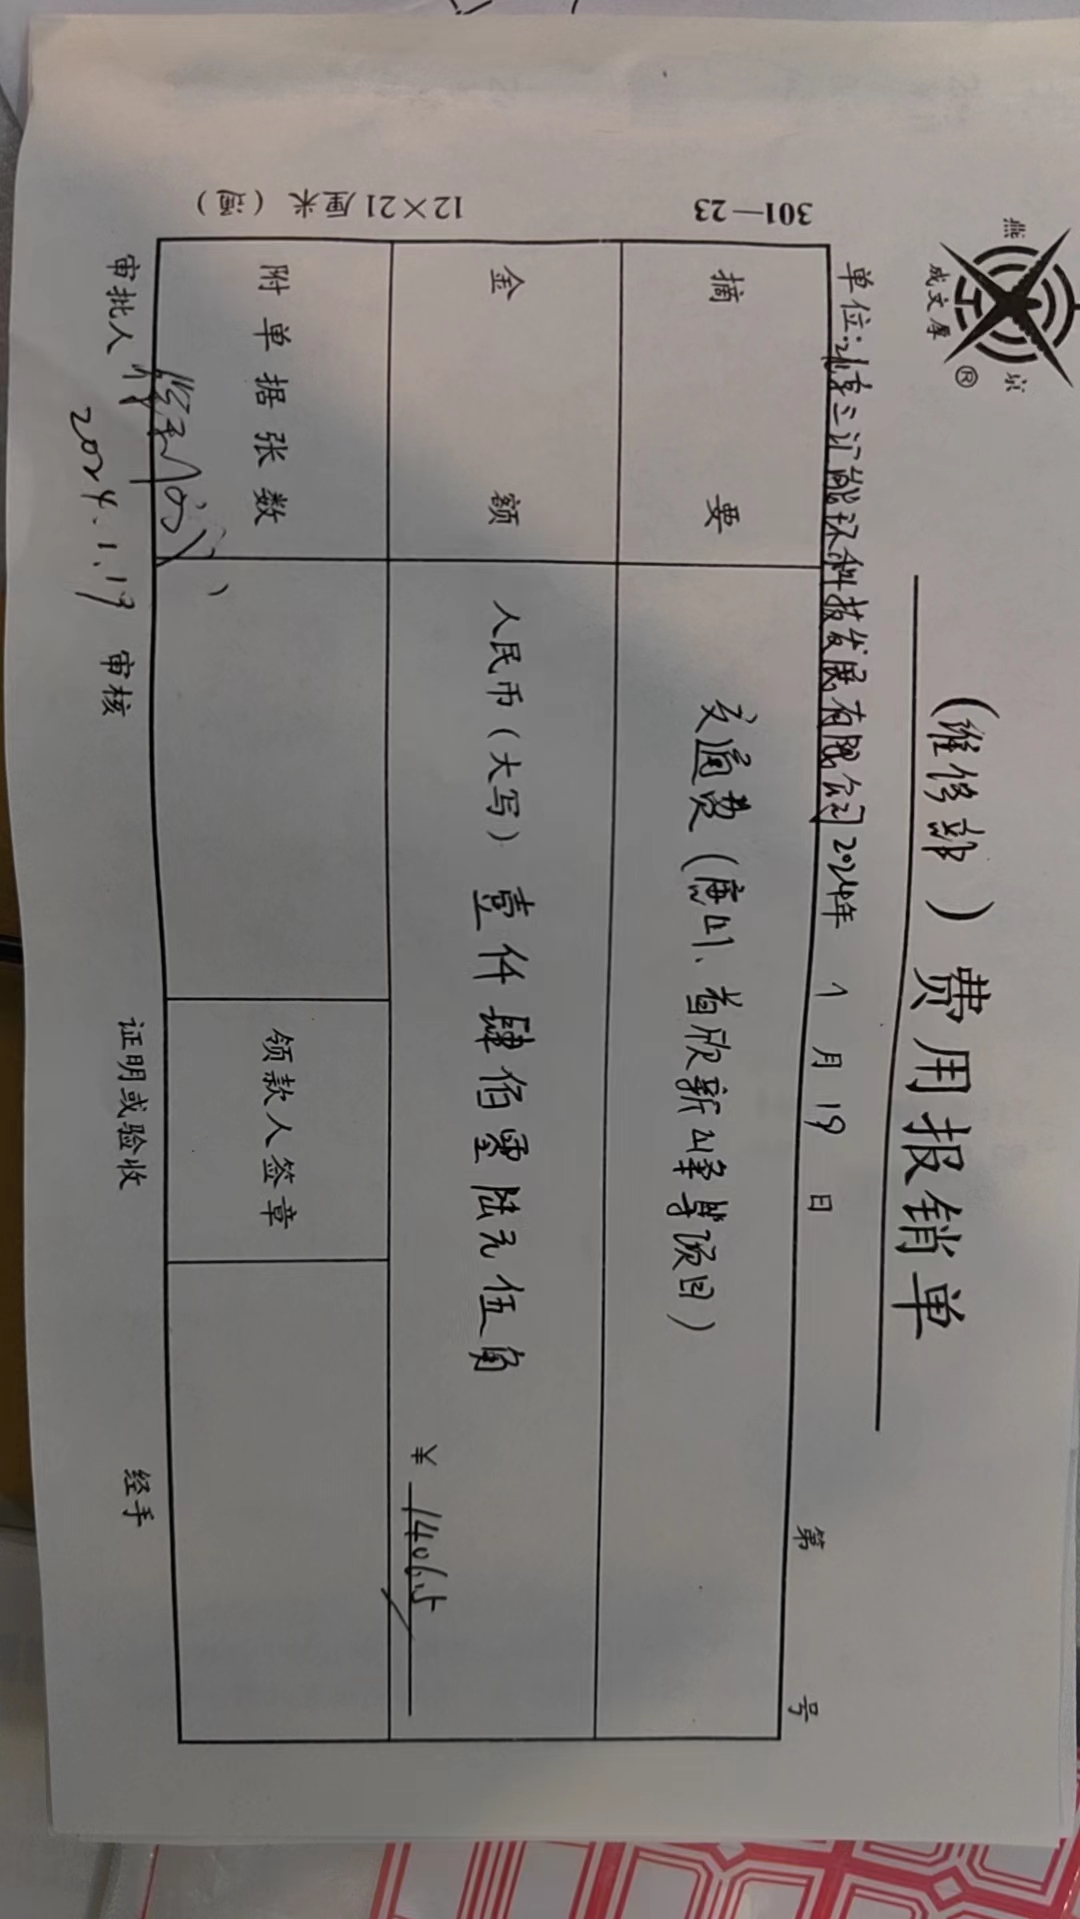 燕 京
成文厚
®
(维修部)费用报销单
单位:北京三汇能环科技发展有限公司 2024年 1 月 19 日 第 号
摘 要 交通费(唐山、首欣新山华等项目)
金 额 人民币(大写)壹仟肆佰零陆元伍角 ¥ 1406.5
附单据张数 领款人签章
审批人 审核 证明或验收 经手
2024.1.19
301—23
12×21厘米(通)